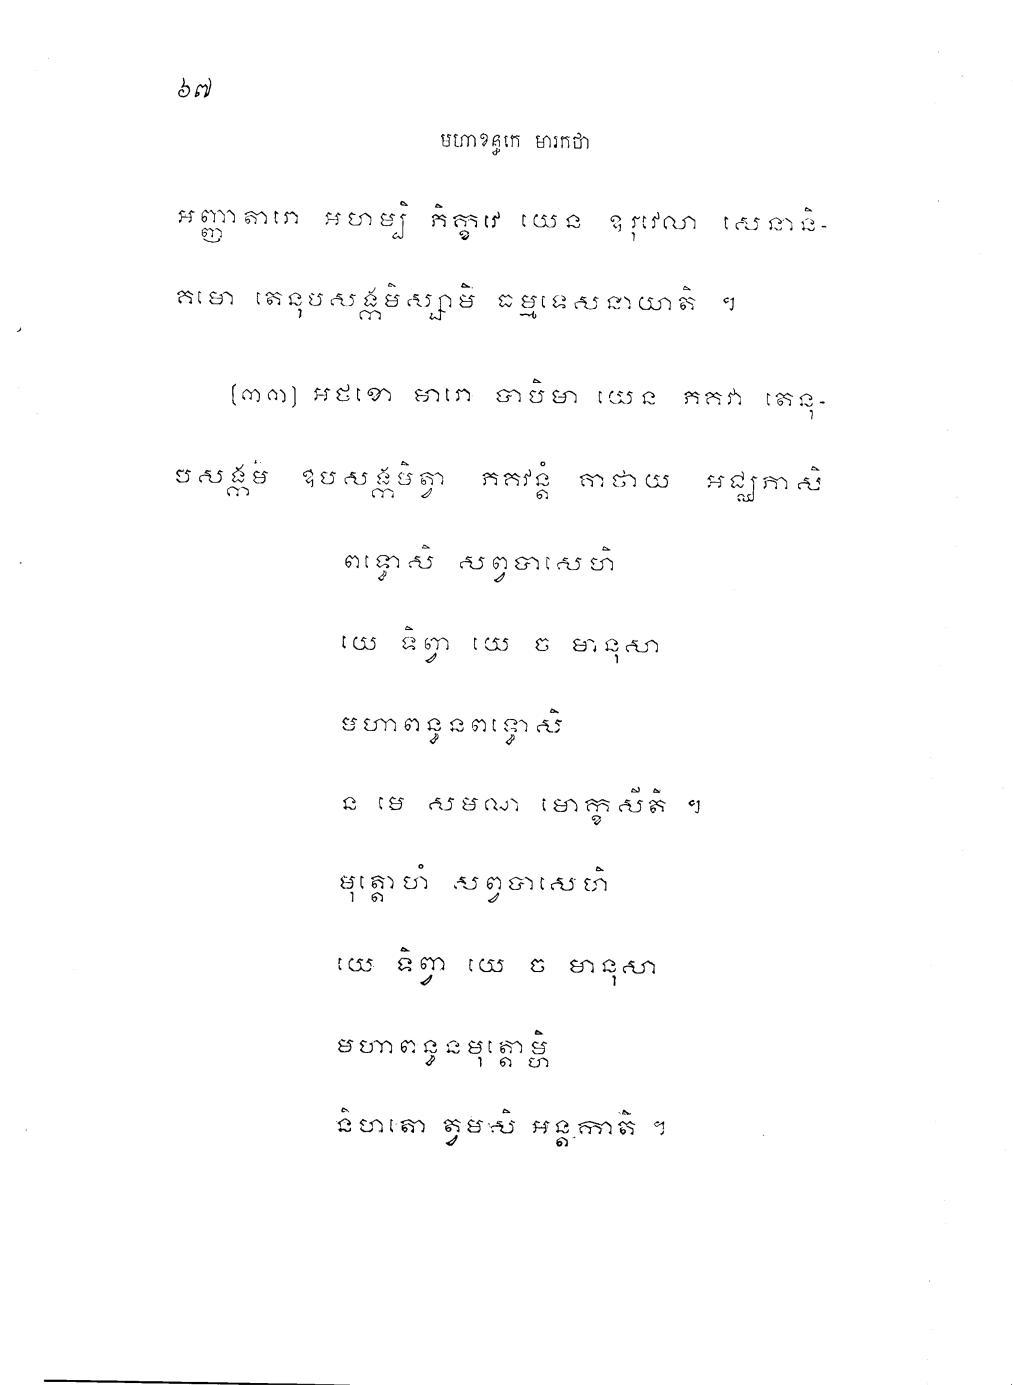 ៦៧
មហាខន្ធកេ មារកថា
អញ្ញាតារោ អហម្បិ ភិក្ខវេ យេន ឧរុវេលា សេនានិ-
គមោ តេនុបសង្កមិស្សាមិ ធម្មទេសនាយាតិ ។
[៣៣] អថខោ មារោ បាបិមា យេន ភគវា តេនុ-
បសង្កមិ ឧបសង្កមិត្វា ភគវន្តំ គាថាយ អជ្ឈភាសិ
ពទ្ធោសិ សព្វបាសេហិ
យេ ទិព្វា យេ ច មានុសា
មហាពន្ធនពទ្ធោសិ
ន មេ សមណ មោក្ខសីតិ ។
មុត្តោហំ សព្វបាសេហិ
យេ ទិព្វា យេ ច មានុសា
មហាពន្ធនមុត្តោម្ហិ
និហតោ ត្វមសិ អន្តកាតិ ។